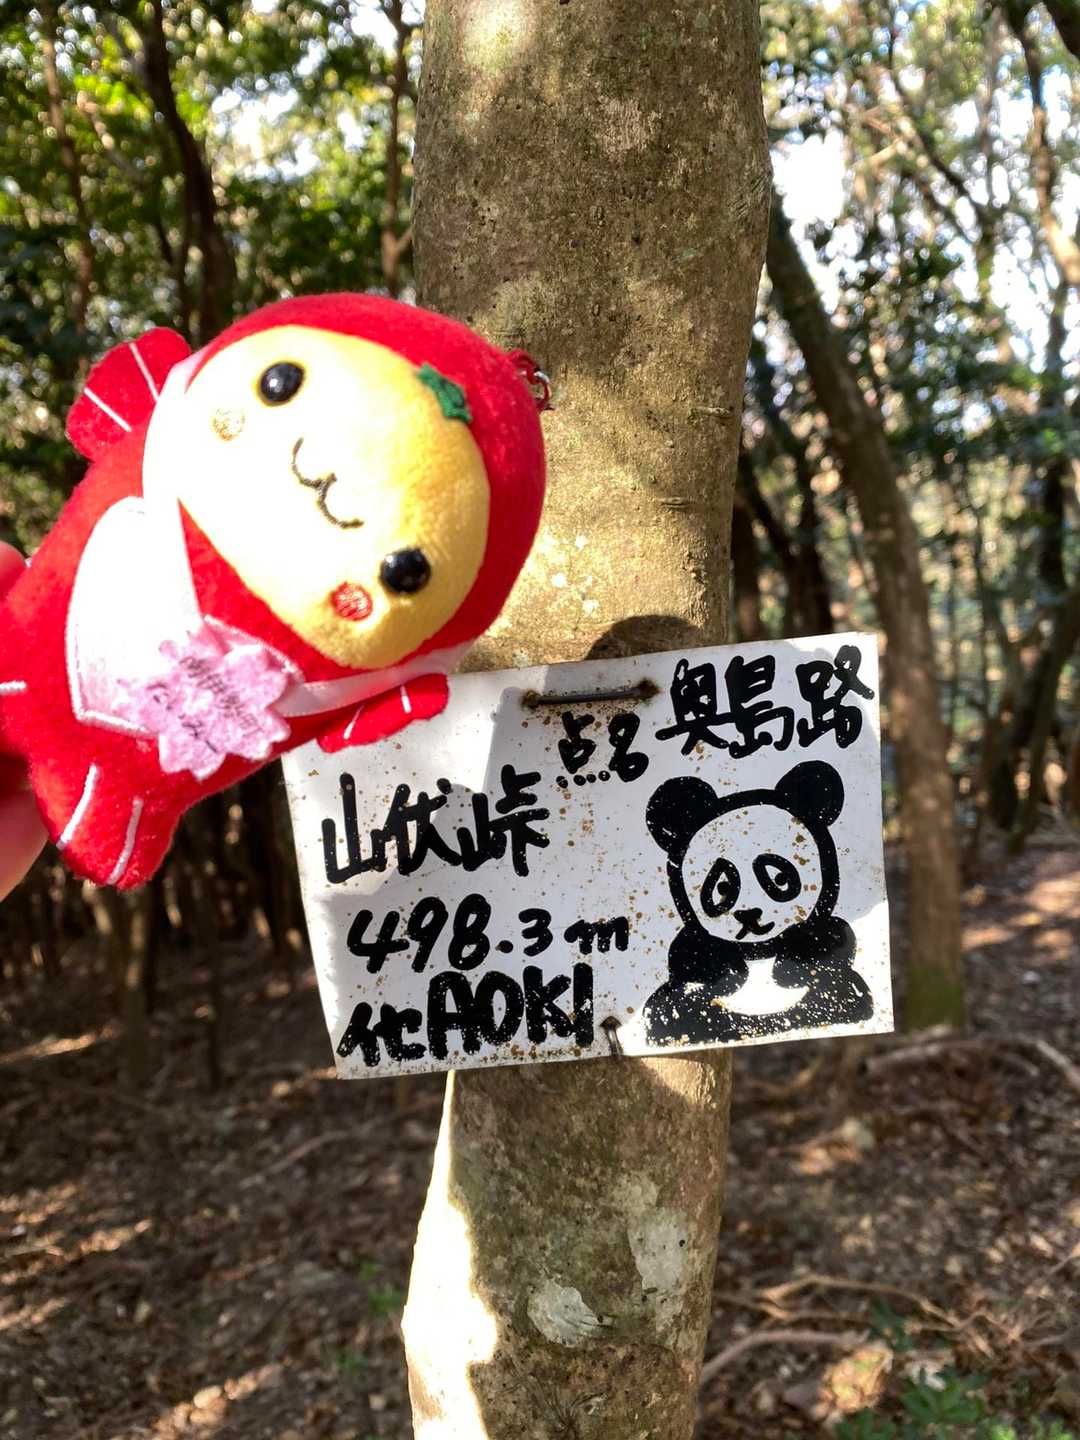 点名 奥島路
山伏峠
498.3m
他AOKI